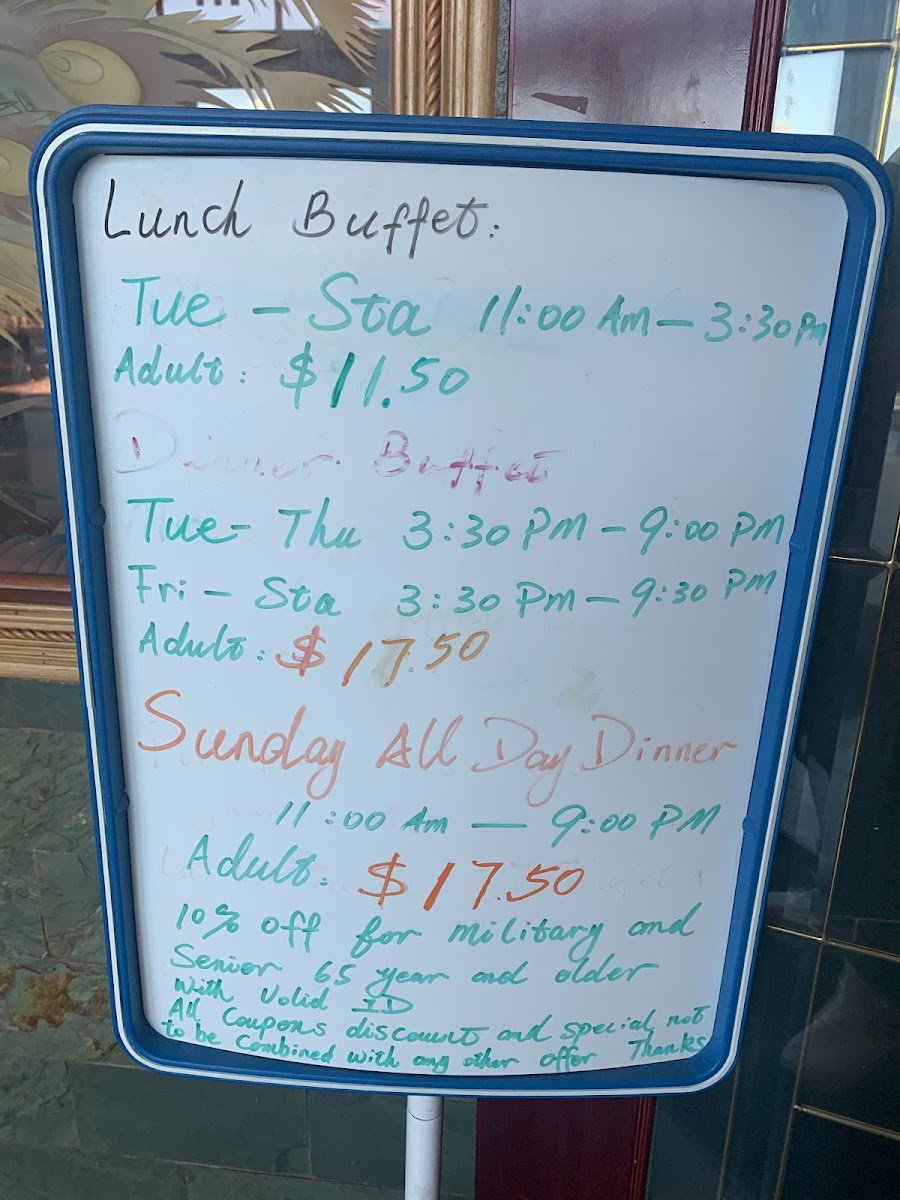 Lunch Buffet:
Tue - Sta 11:00 Am - 3:30 Pm
Adult: $11.50
Dinner Buffet
Tue- Thu 3:30 PM - 9:00 PM
Fri - Sta 3:30 Pm - 9:30 PM
Adult: $17.50
Sunday All Day Dinner
11:00 Am — 9:00 PM
Adult: $17.50
10% off for military and
Senior 65 year and older
with Volid ID
All Coupons discount and special not
to be combined with any other offer Thanks